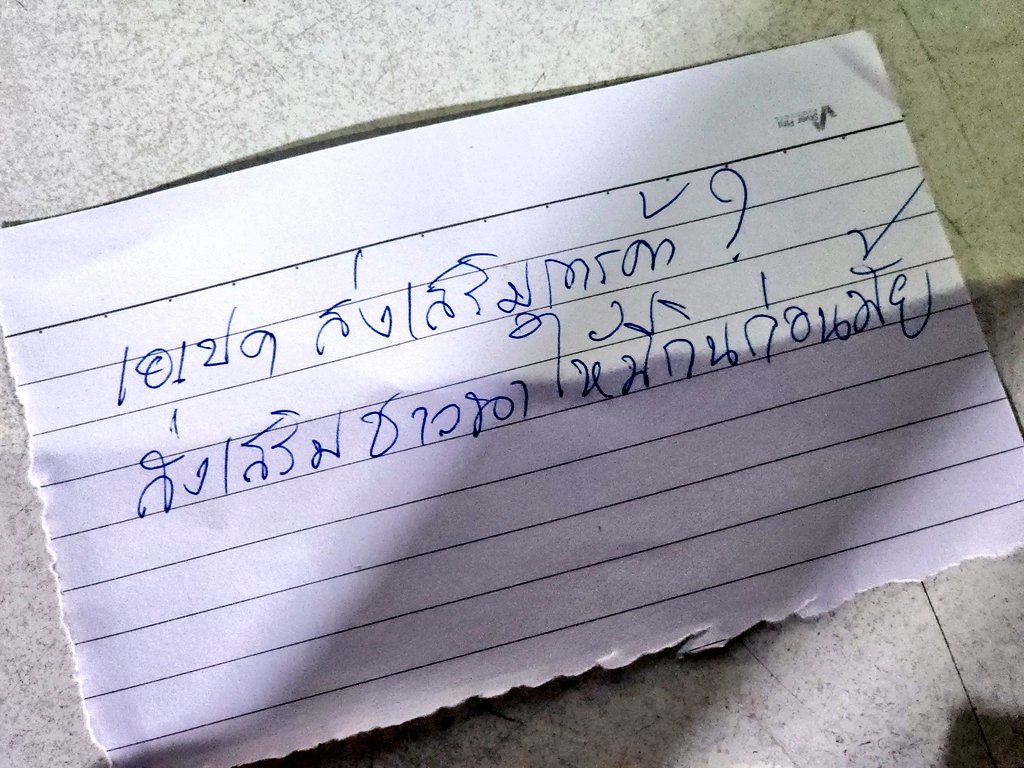 เอเปค ส่งเสริมการค้า ?
ส่งเสริมชาวนา ให้มีกินก่อนมั้ย